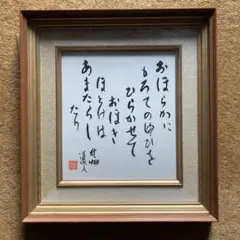 おほらかに
もろてのゆひを
ひらかせて
おほき
ほとけは
あまたらし
たり
道人